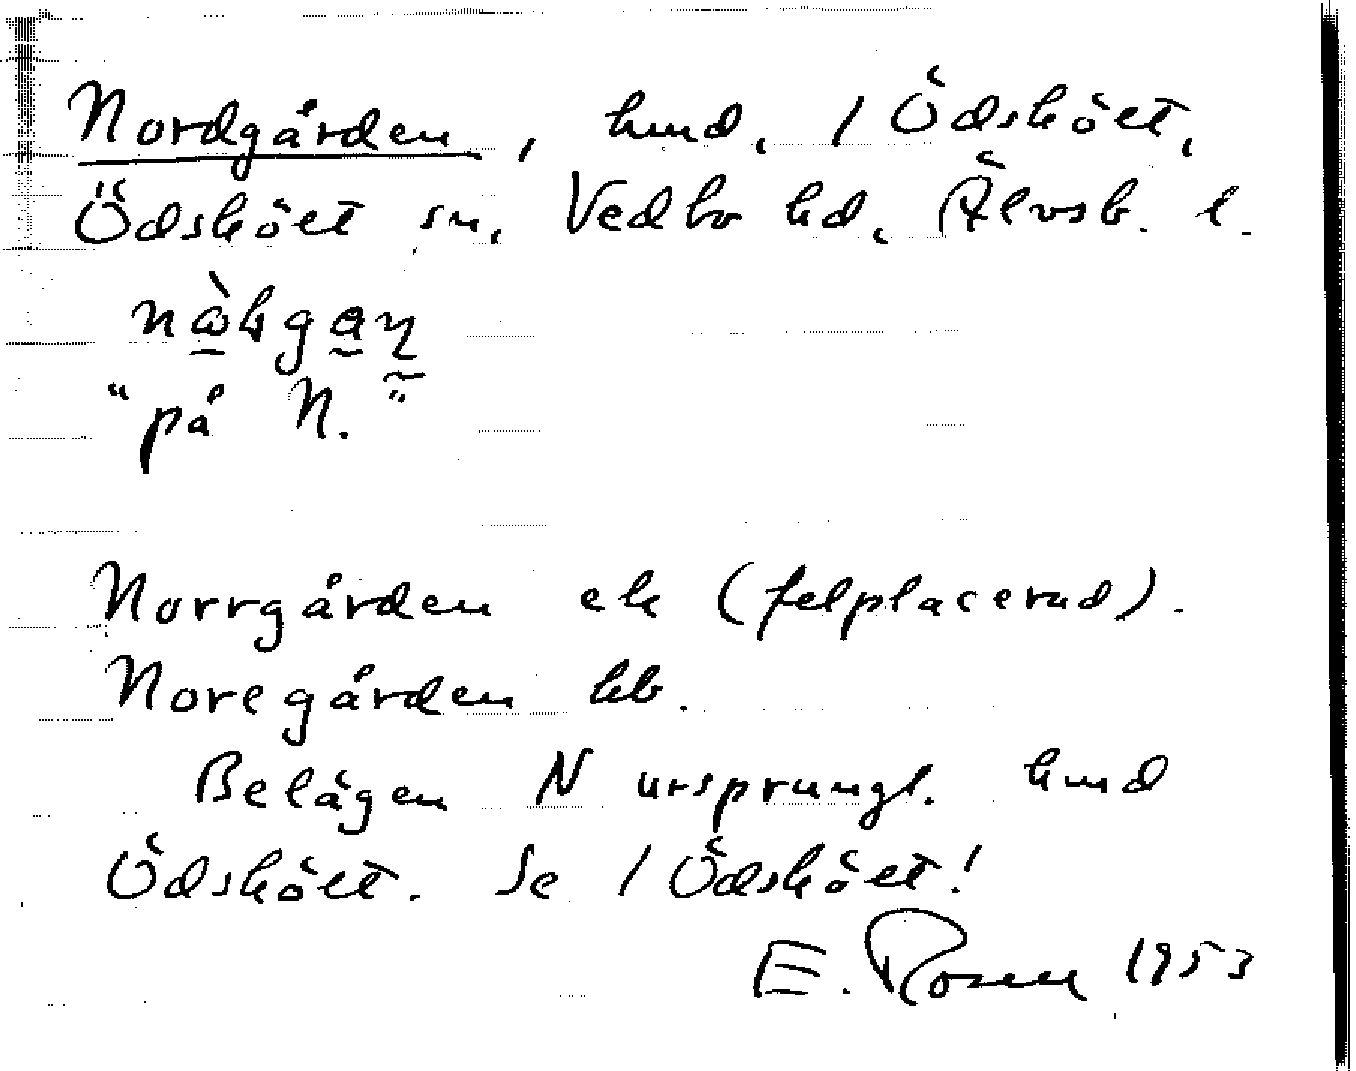 Nordgården, hmd, 1 Ödskölt,
Ödskölt sn, Vedbo hd, Älvsb. l.
"på N."
Norrgården ek (felplacerad).
Noregården kb.
Belägen N ursprungl. hmd
Ödskölt. Se 1 Ödskölt!
E. Rosell 1953